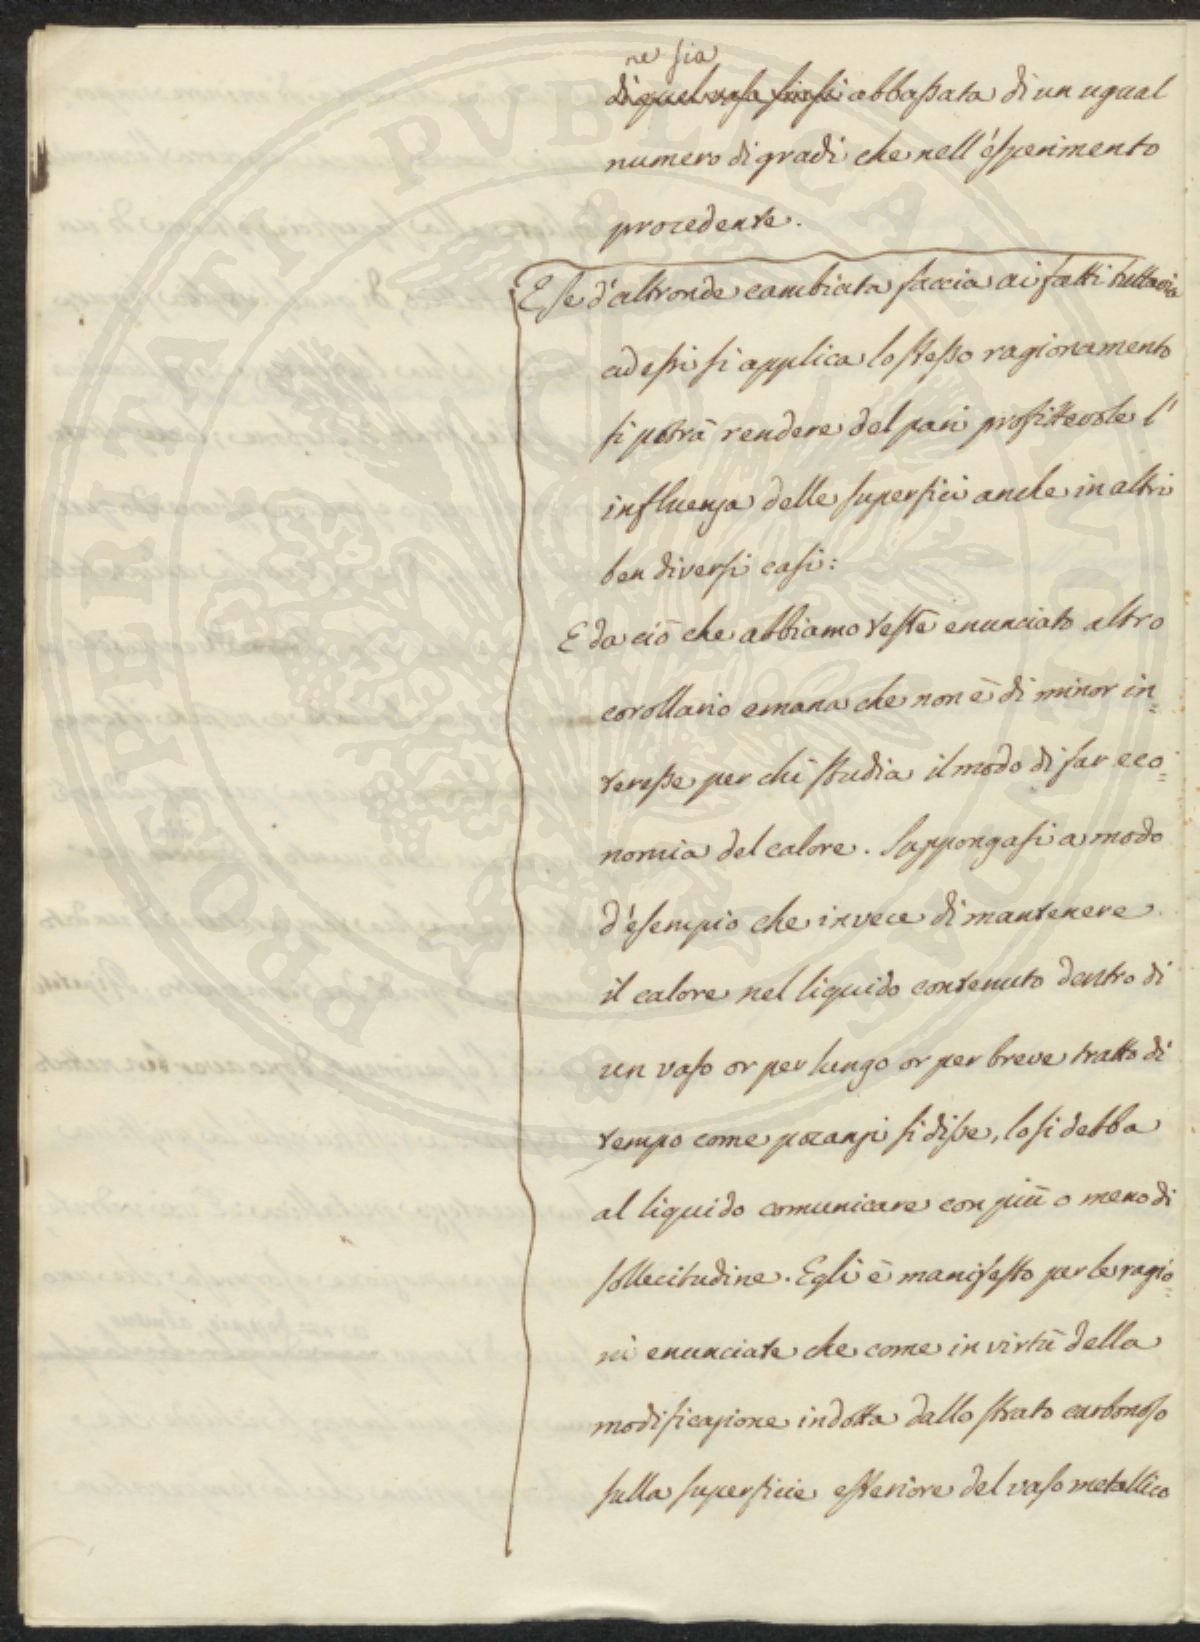 ne sia
di quel vaso siasi abbassata di un ugual
numero di gradi che nell'esperimento
precedente.
E se d'altronde cambiata faccia ai fatti tuttavia
ad essi si applica lo stesso ragionamento
si potrà rendere del pari profittevole l'
influenza delle superfici anche in altri
ben diversi casi:
E da ciò che abbiamo testè enunciato altro
corollario emana che non è di minor in=
teresse per chi studia il modo di far eco=
nomia del calore. Suppongasi a modo
d'esempio che invece di mantenere
il calore nel liquido contenuto dentro di
un vaso or per lungo or per breve tratto di
tempo come pocanzi si disse, lo si debba
al liquido comunicare con più o meno di
sollecitudine. Egli è manifesto per le ragio=
ni enunciate che come in virtù della
modificazione indotta dallo strato carbonoso
sulla superficie esteriore del vaso metallico
PROSPERITATI PVBLICAE AVGENDAE